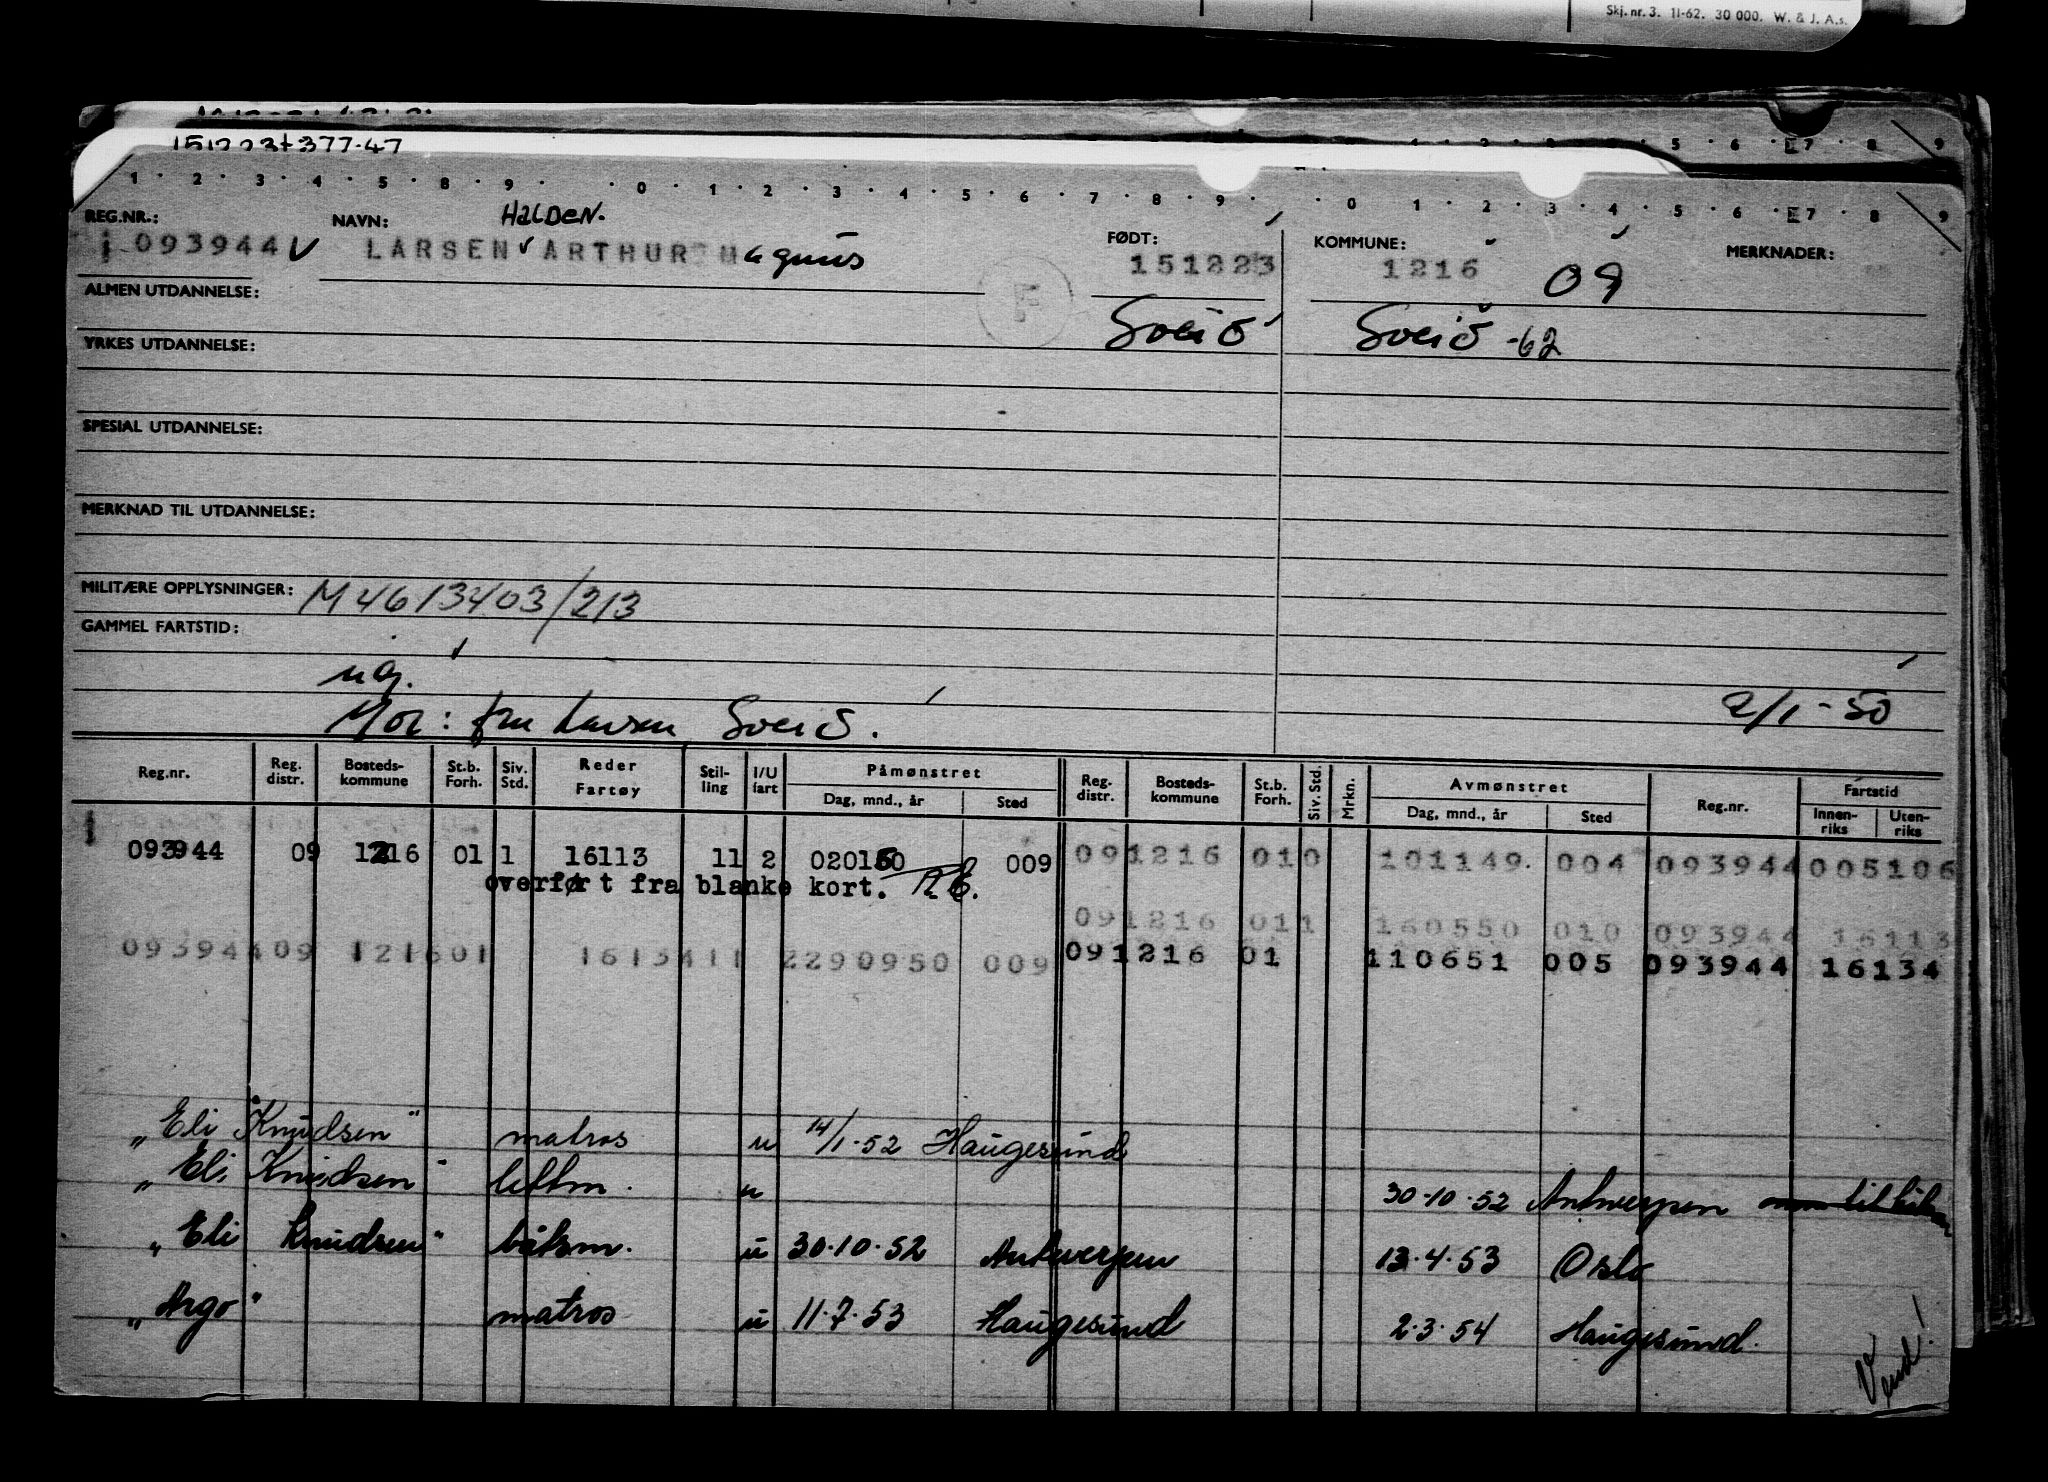 Skj. nr. 3. 11-62. 30 000. W. & J. A.s.
151223+377.47
1 · 2 · 3 · 4 · 5 · 8 · 9 · 0 · 1 · 2 · 3 · 4 · 5 · 6 · 7 · 8 · 9 · 0 1 2 3 4 5 6 7 8 9
REG.NR.: NAVN: HALDEN. FØDT: KOMMUNE: MERKNADER:
093944 V LARSEN ARTHUR Magnus 151223 1216 09
ALMEN UTDANNELSE: F Sveio Sveio -62
YRKES UTDANNELSE:
SPESIAL UTDANNELSE:
MERKNAD TIL UTDANNELSE:
MILITÆRE OPPLYSNINGER: M4613403/213
GAMMEL FARTSTID:
ug.
Mor: fru Larsen Sveio. 2/1-50
Reg.nr. Reg. distr. Bosteds-kommune St.b. Forh. Siv. Std. Reder Fartøy Stil-ling I/U fart Påmønstret Dag, mnd., år Sted Reg. distr. Bosteds-kommune St.b. Forh. Siv. Std. Mrkn. Avmønstret Dag, mnd., år Sted Reg.nr. Fartstid Innen-riks Uten-riks
093944 09 1216 01 1 16113 11 2 020150 009 091216 010 101149. 004 093944 005106
overført fra blanke kort.
091216 011 160550 010 093944 16113
09394409 121601 1613411 2290950 009 091216 01 110651 005 093944 16134
"Eli Knudsen" matros u 14/1-52 Haugesund
"Eli Knudsen" lettm. u 30-10-52 Antwerpen
"Eli Knudsen" båtsm. u 30-10-52 Antwerpen 13-4-53 Oslo
"Argo" matros u 11-7-53 Haugesund 2-3-54 Haugesund.
Vend!